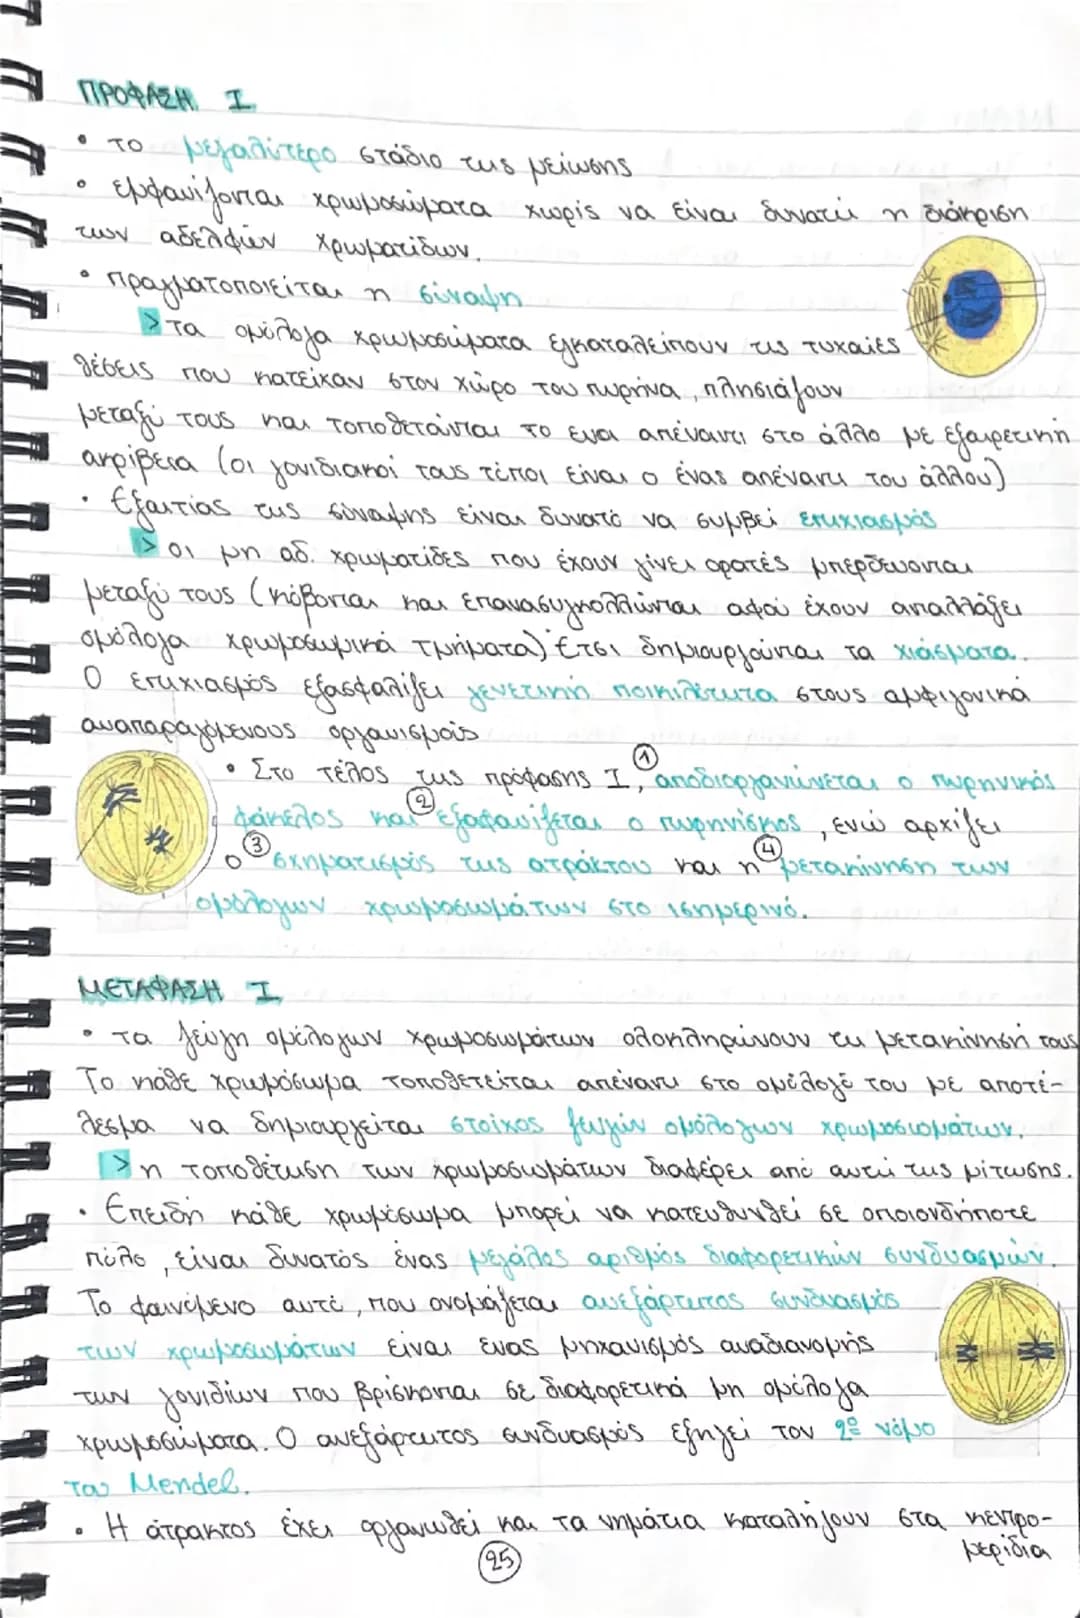 ΠΡΟΦΑΣΗ I
• το μεγαλύτερο στάδιο της μείωσης
• εμφανίζονται χρωμοσώματα χωρίς να είναι δυνατή η διάκριση
των αδελφών χρωματίδων.
• πραγματοποιείται η σύναψη
> τα ομόλογα χρωμοσώματα εγκαταλείπουν τις τυχαίες
θέσεις που κατείχαν στον χώρο του πυρήνα, πλησιάζουν
μεταξύ τους και τοποθετούνται το ένα απέναντι στο άλλο με εξαιρετική
ακρίβεια (οι γονιδιακοί τους τόποι είναι ο ένας απέναντι του άλλου)
• Εξαιτίας της σύναψης είναι δυνατό να συμβεί επιχιασμός
> οι μη αδ. χρωματίδες που έχουν γίνει ορατές μπερδεύονται
μεταξύ τους (κόβονται και επανασυγκολλώνται αφού έχουν ανταλλάξει
ομόλογα χρωμοσωμικά τμήματα) Έτσι δημιουργούνται τα χιάσματα.
Ο επιχιασμός εξασφαλίζει γενετική ποικιλότητα στους αμφιγονικά
αναπαραγόμενους οργανισμούς
• Στο τέλος της πρόφασης I, ① αποδιοργανώνεται ο πυρηνικός
φάκελος και ② εξαφανίζεται ο πυρηνίσκος, ενώ αρχίζει
ο ③ σχηματισμός της ατράκτου και η ④ μετακίνηση των
ομόλογων χρωμοσωμάτων στο ισημερινό.
ΜΕΤΑΦΑΣΗ I
• τα ζεύγη ομόλογων χρωμοσωμάτων ολοκληρώνουν τη μετακίνησή τους
Το κάθε χρωμόσωμα τοποθετείται απέναντι στο ομόλογό του με αποτέ-
λεσμα να δημιουργείται στοίχος ζευγών ομόλογων χρωμοσωμάτων.
> η τοποθέτηση των χρωμοσωμάτων διαφέρει από αυτή της μίτωσης.
• Επειδή κάθε χρωμόσωμα μπορεί να κατευθυνθεί σε οποιονδήποτε
πόλο, είναι δυνατός ένας μεγάλος αριθμός διαφορετικών συνδυασμών.
Το φαινόμενο αυτό, που ονομάζεται ανεξάρτητος συνδυασμός
των χρωμοσωμάτων είναι ένας μηχανισμός αναδιανομής
των γονιδίων που βρίσκονται σε διαφορετικά μη ομόλογα
χρωμοσώματα. Ο ανεξάρτητος συνδυασμός εξηγεί τον 2ο νόμο
του Mendel.
• Η άτρακτος έχει οργανωθεί και τα νημάτια καταλήγουν στα κεντρο-
μερίδια
25